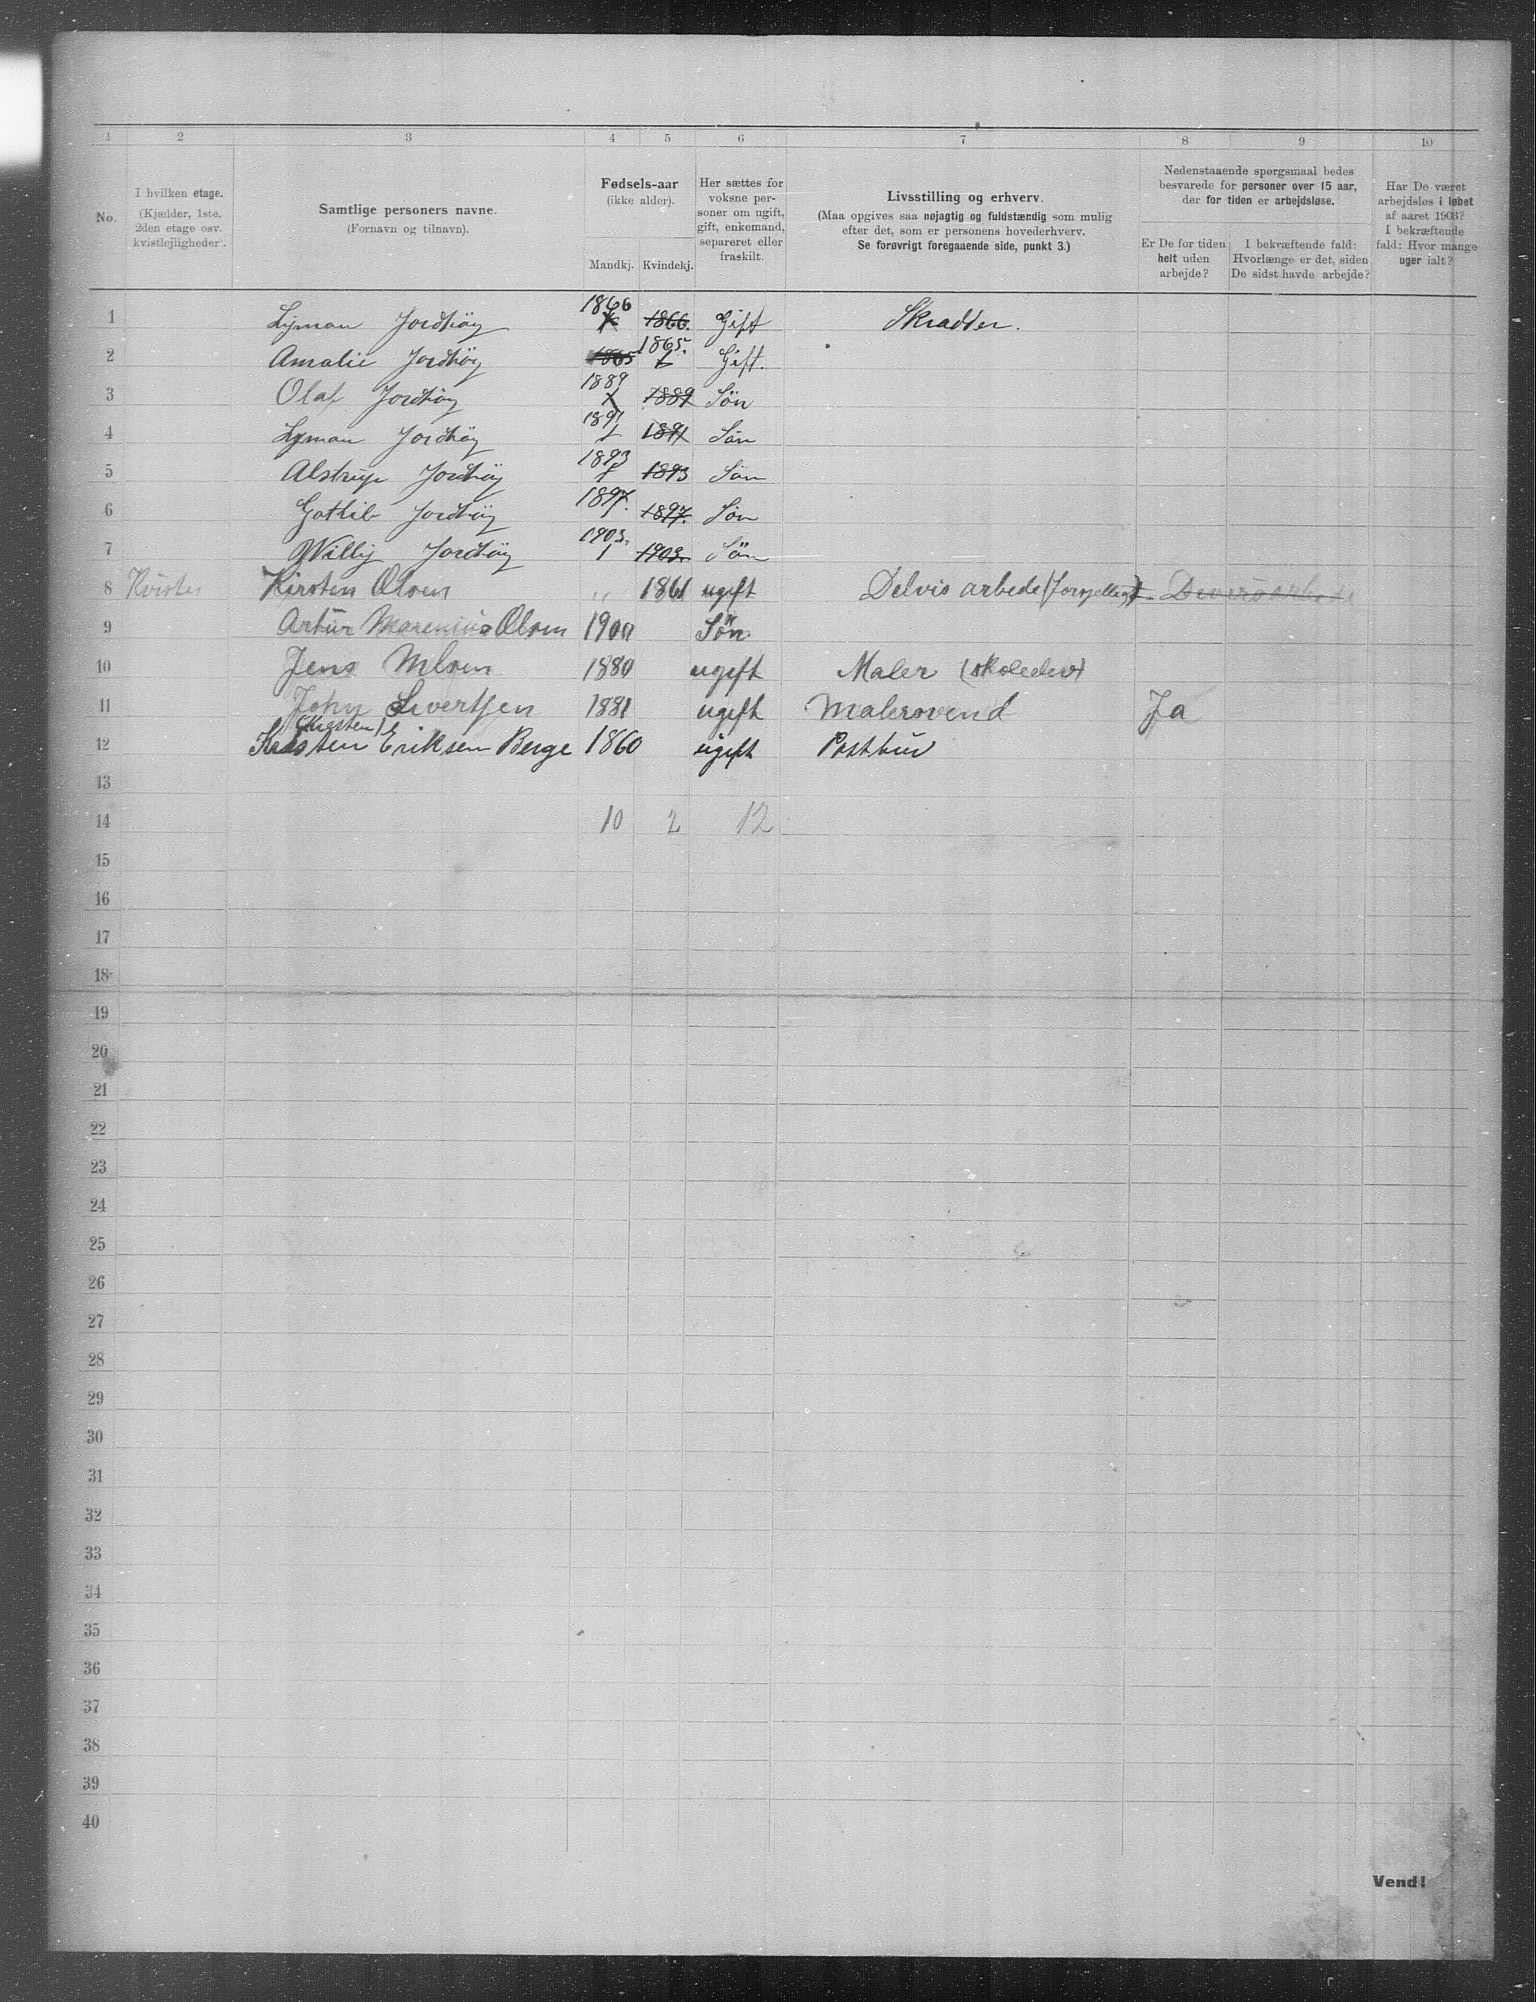 1 2 3 4 5 6 7 8 9 10
No.
I hvilken etage.
(Kjælder, 1ste,
2den etage osv.
kvistlejligheder).
Samtlige personers navne.
(Fornavn og tilnavn).
Fødsels-aar
(ikke alder).
Mandkj. Kvindekj.
Her sættes for
voksne per-
soner om ugift,
gift, enkemand,
separeret eller
fraskilt.
Livsstilling og erhverv.
(Maa opgives saa nøjagtig og fuldstændig som mulig
efter det, som er personens hovederhverv.
Se forøvrigt foregaaende side, punkt 3.)
Nedenstaaende spørgsmaal bedes
besvarede for personer over 15 aar,
der for tiden er arbejdsløse.
Er De for tiden
helt uden
arbejde?
I bekræftende fald:
Hvorlænge er det, siden
De sidst havde arbejde?
Har De været
arbejdsløs i løbet
af aaret 1903?
I bekræftende
fald: Hvor mange
uger ialt?
1 Lyman Jordhöy 1866 1866. Gift Skradder.
2 Amalie Jordhöy 1865 1865. Gift.
3 Olaf Jordhöy 1889 1889 Sön
4 Lyman Jordhöy 1891 1891 Sön
5 Alstrup Jordhöy 1893 1893 Sön
6 Gothib Jordhöy 1897. 1897. Sön
7 Willy Jordhöy 1903. 1903. Sön
8 Kirsten Olsen „ 1861 ugift Delvis arbede
9 Artur Marenius Olsen 1900 Sön
10 Jens 1880 ugift Maler
11 John Sivertsen 1881 ugift Malersvend Ja
12 Eriksen Berge 1860 ugift Postbud
13
14 10 2 12
15
16
17
18
19
20
21
22
23
24
25
26
27
28
29
30
31
32
33
34
35
36
37
38
39
40
Vend!